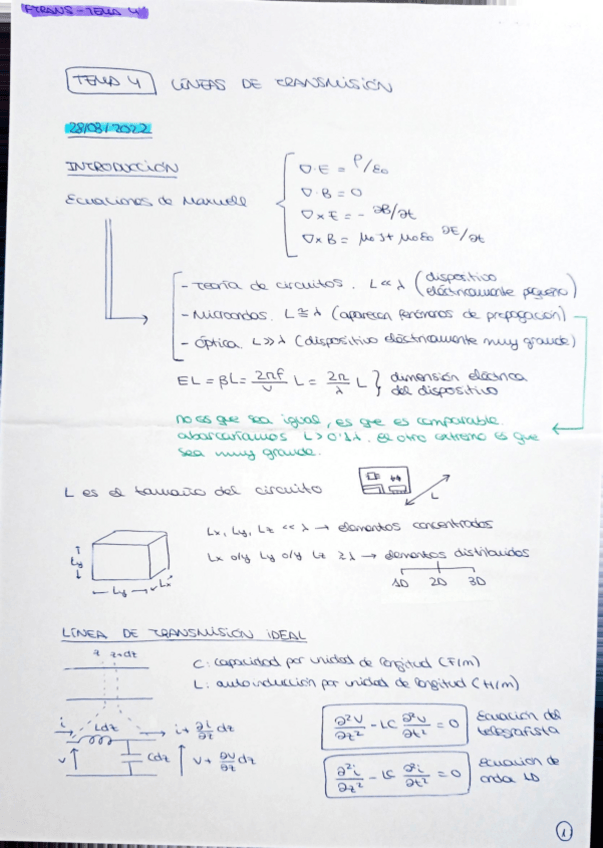 FTRANS-TEMA 4
TEMA 4 LÍNEAS DE TRANSMISIÓN
28/03/2022
INTRODUCCIÓN
Ecuaciones de Maxwell
∇·E = ρ/ε₀
∇·B = 0
∇×E = - ∂B/∂t
∇×B = μ₀J + μ₀ε₀ ∂E/∂t
- Teoría de circuitos. L << λ (dispositivo eléctricamente pequeño)
- Microondas. L ≅ λ (aparecen fenómenos de propagación)
- Óptica. L >> λ (dispositivo eléctricamente muy grande)
EL = βL = 2πf/v L = 2π/λ L } dimensión eléctrica del dispositivo
no es que sea igual, es que es comparable.
abarcaríamos L > 0'1λ. el otro extremo es que
sea muy grande.
L es el tamaño del circuito
L
Lx, Ly, Lz << λ → elementos concentrados
Lx o/y Ly o/y Lz ≥ λ → elementos distribuidos
1D 2D 3D
Ly
Ly
Lx
LÍNEA DE TRANSMISIÓN IDEAL
z z+dz
C: capacidad por unidad de longitud (F/m)
L: autoinducción por unidad de longitud (H/m)
i Ldz i + ∂i/∂z dz
v Cdz v + ∂v/∂z dz
∂²v/∂z² - LC ∂²v/∂t² = 0 Ecuación del telegrafista
∂²i/∂z² - LC ∂²i/∂t² = 0 Ecuación de onda 1D
1